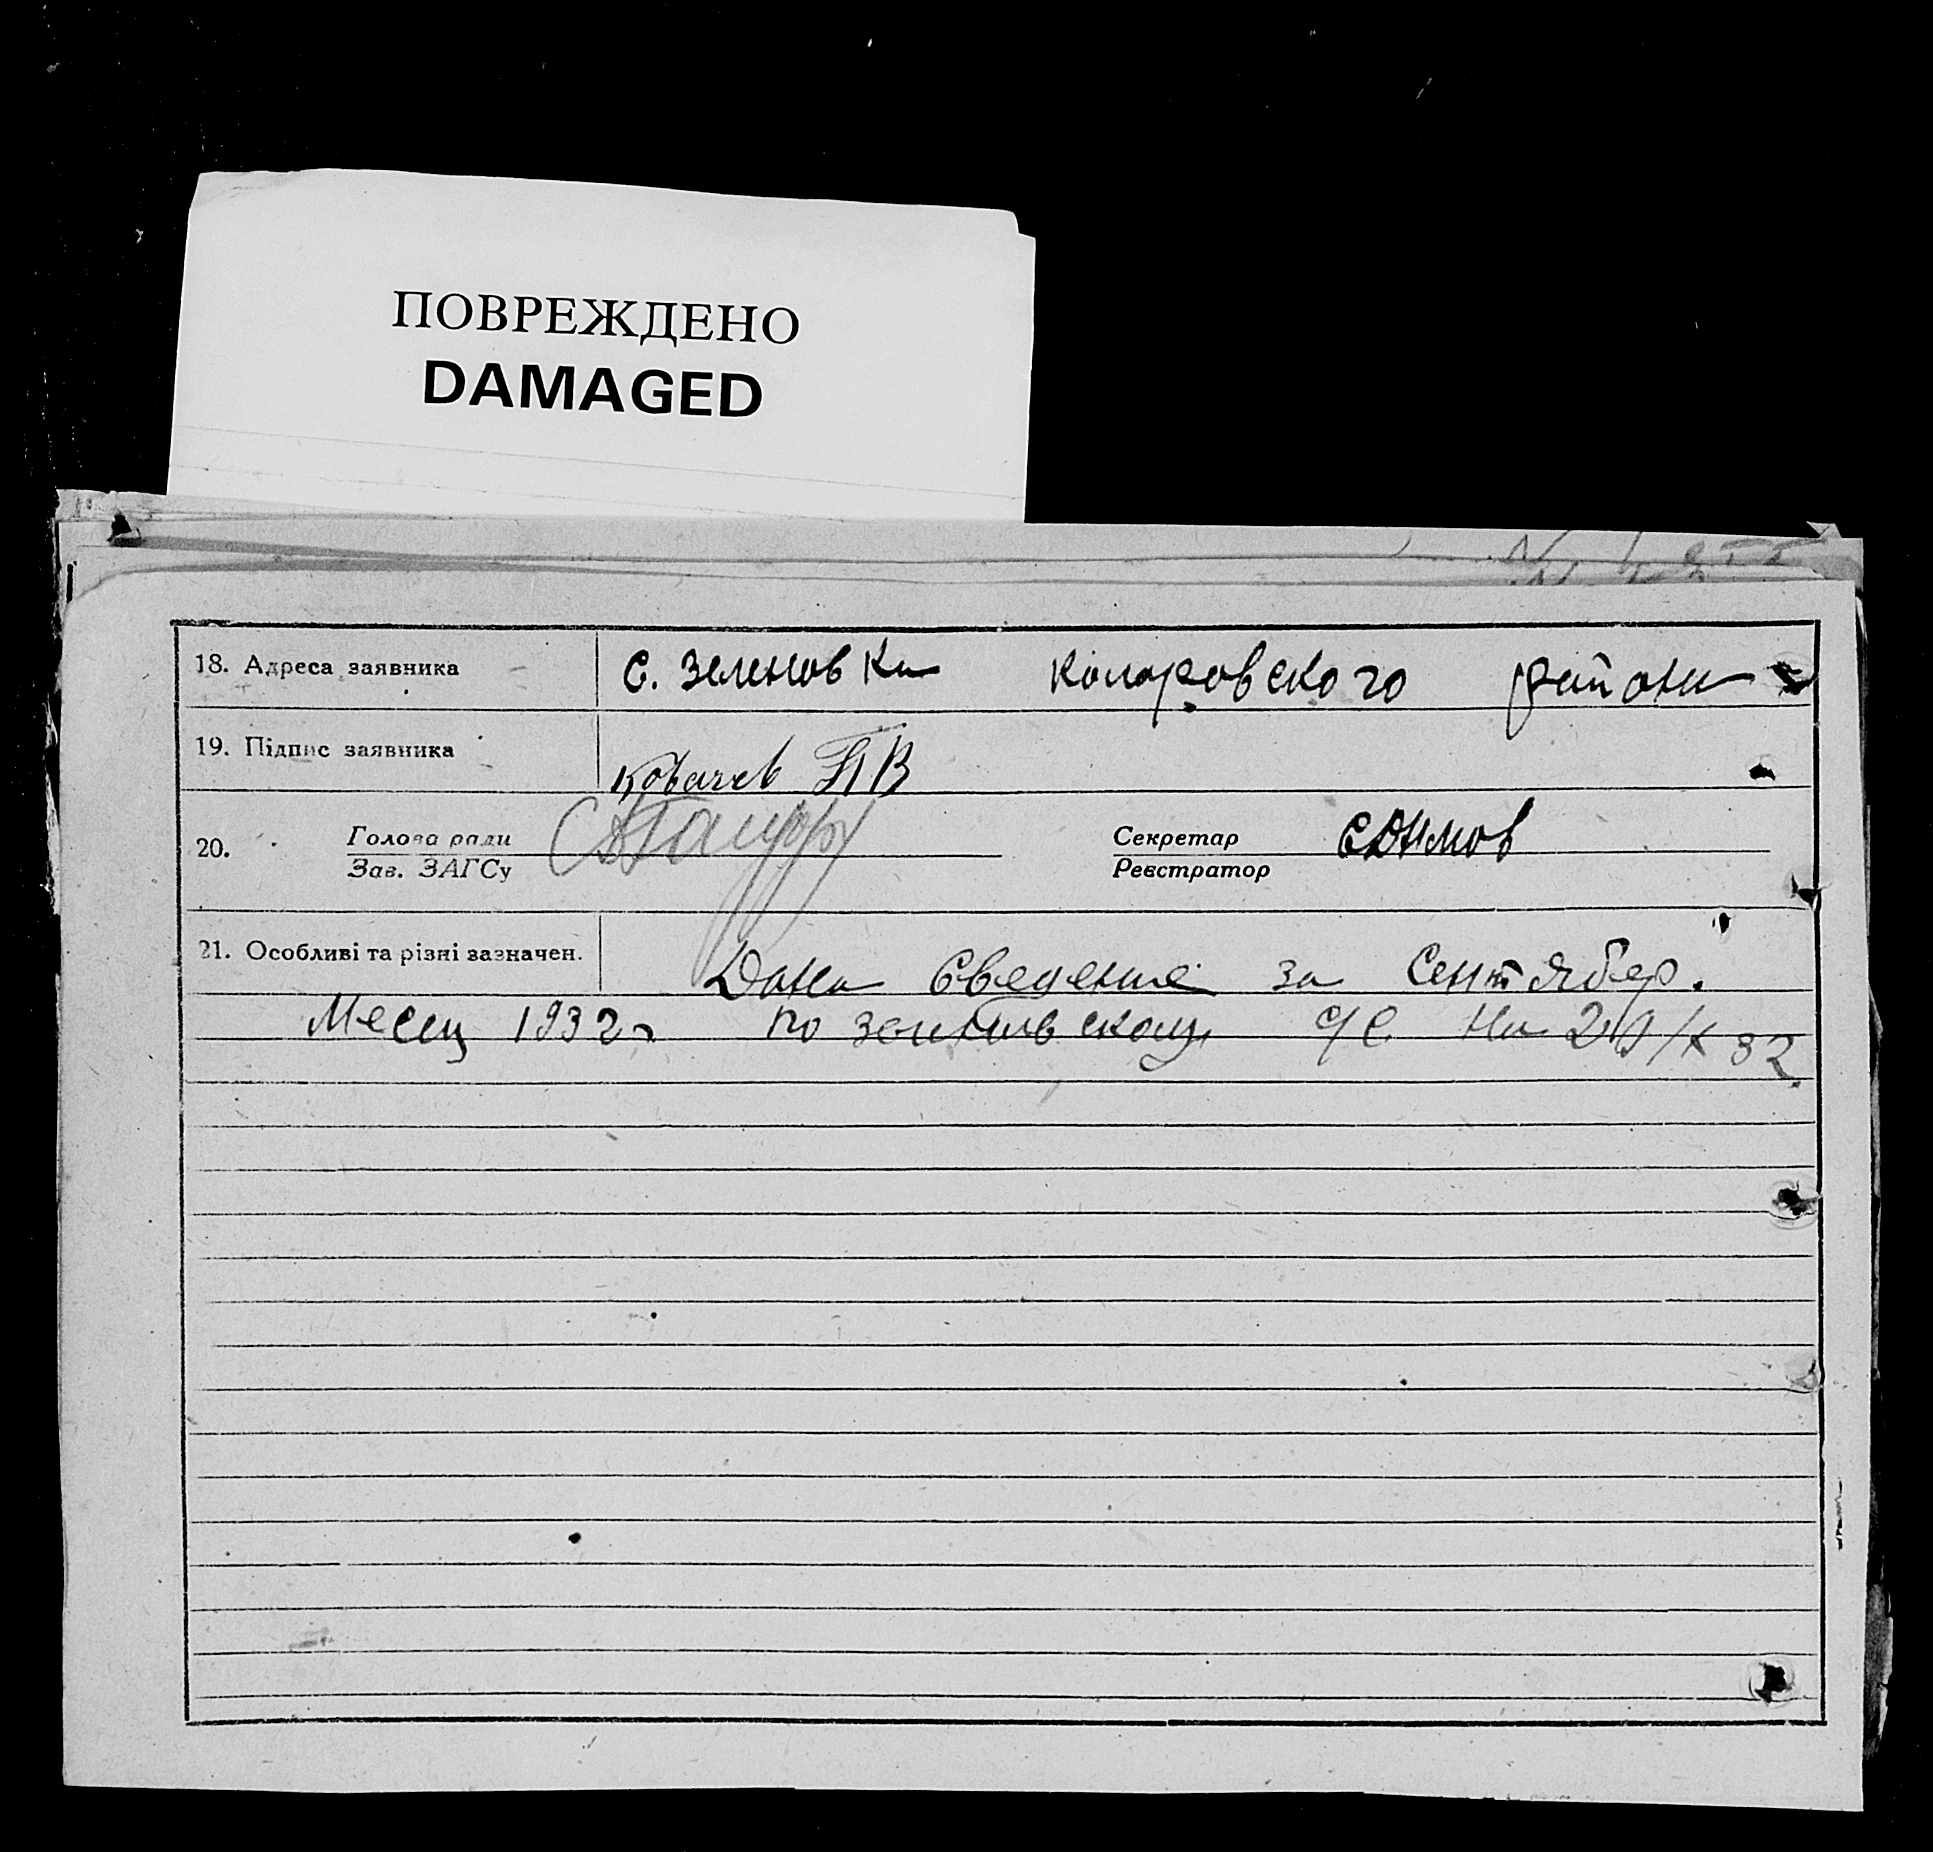 ПОВРЕЖДЕНО
DAMAGED
18. Адреса заявника с. Зеленовка Коларовского района
19. Підпис заявника Ковачев П В
20. Голова ради Секретар ЕДимов
Зав. ЗАГСу Реєстратор
21. Особливі та різні зазначен. Дана Сведения за Сентябер.
Месец 1932 г по зеленовскому с/с На